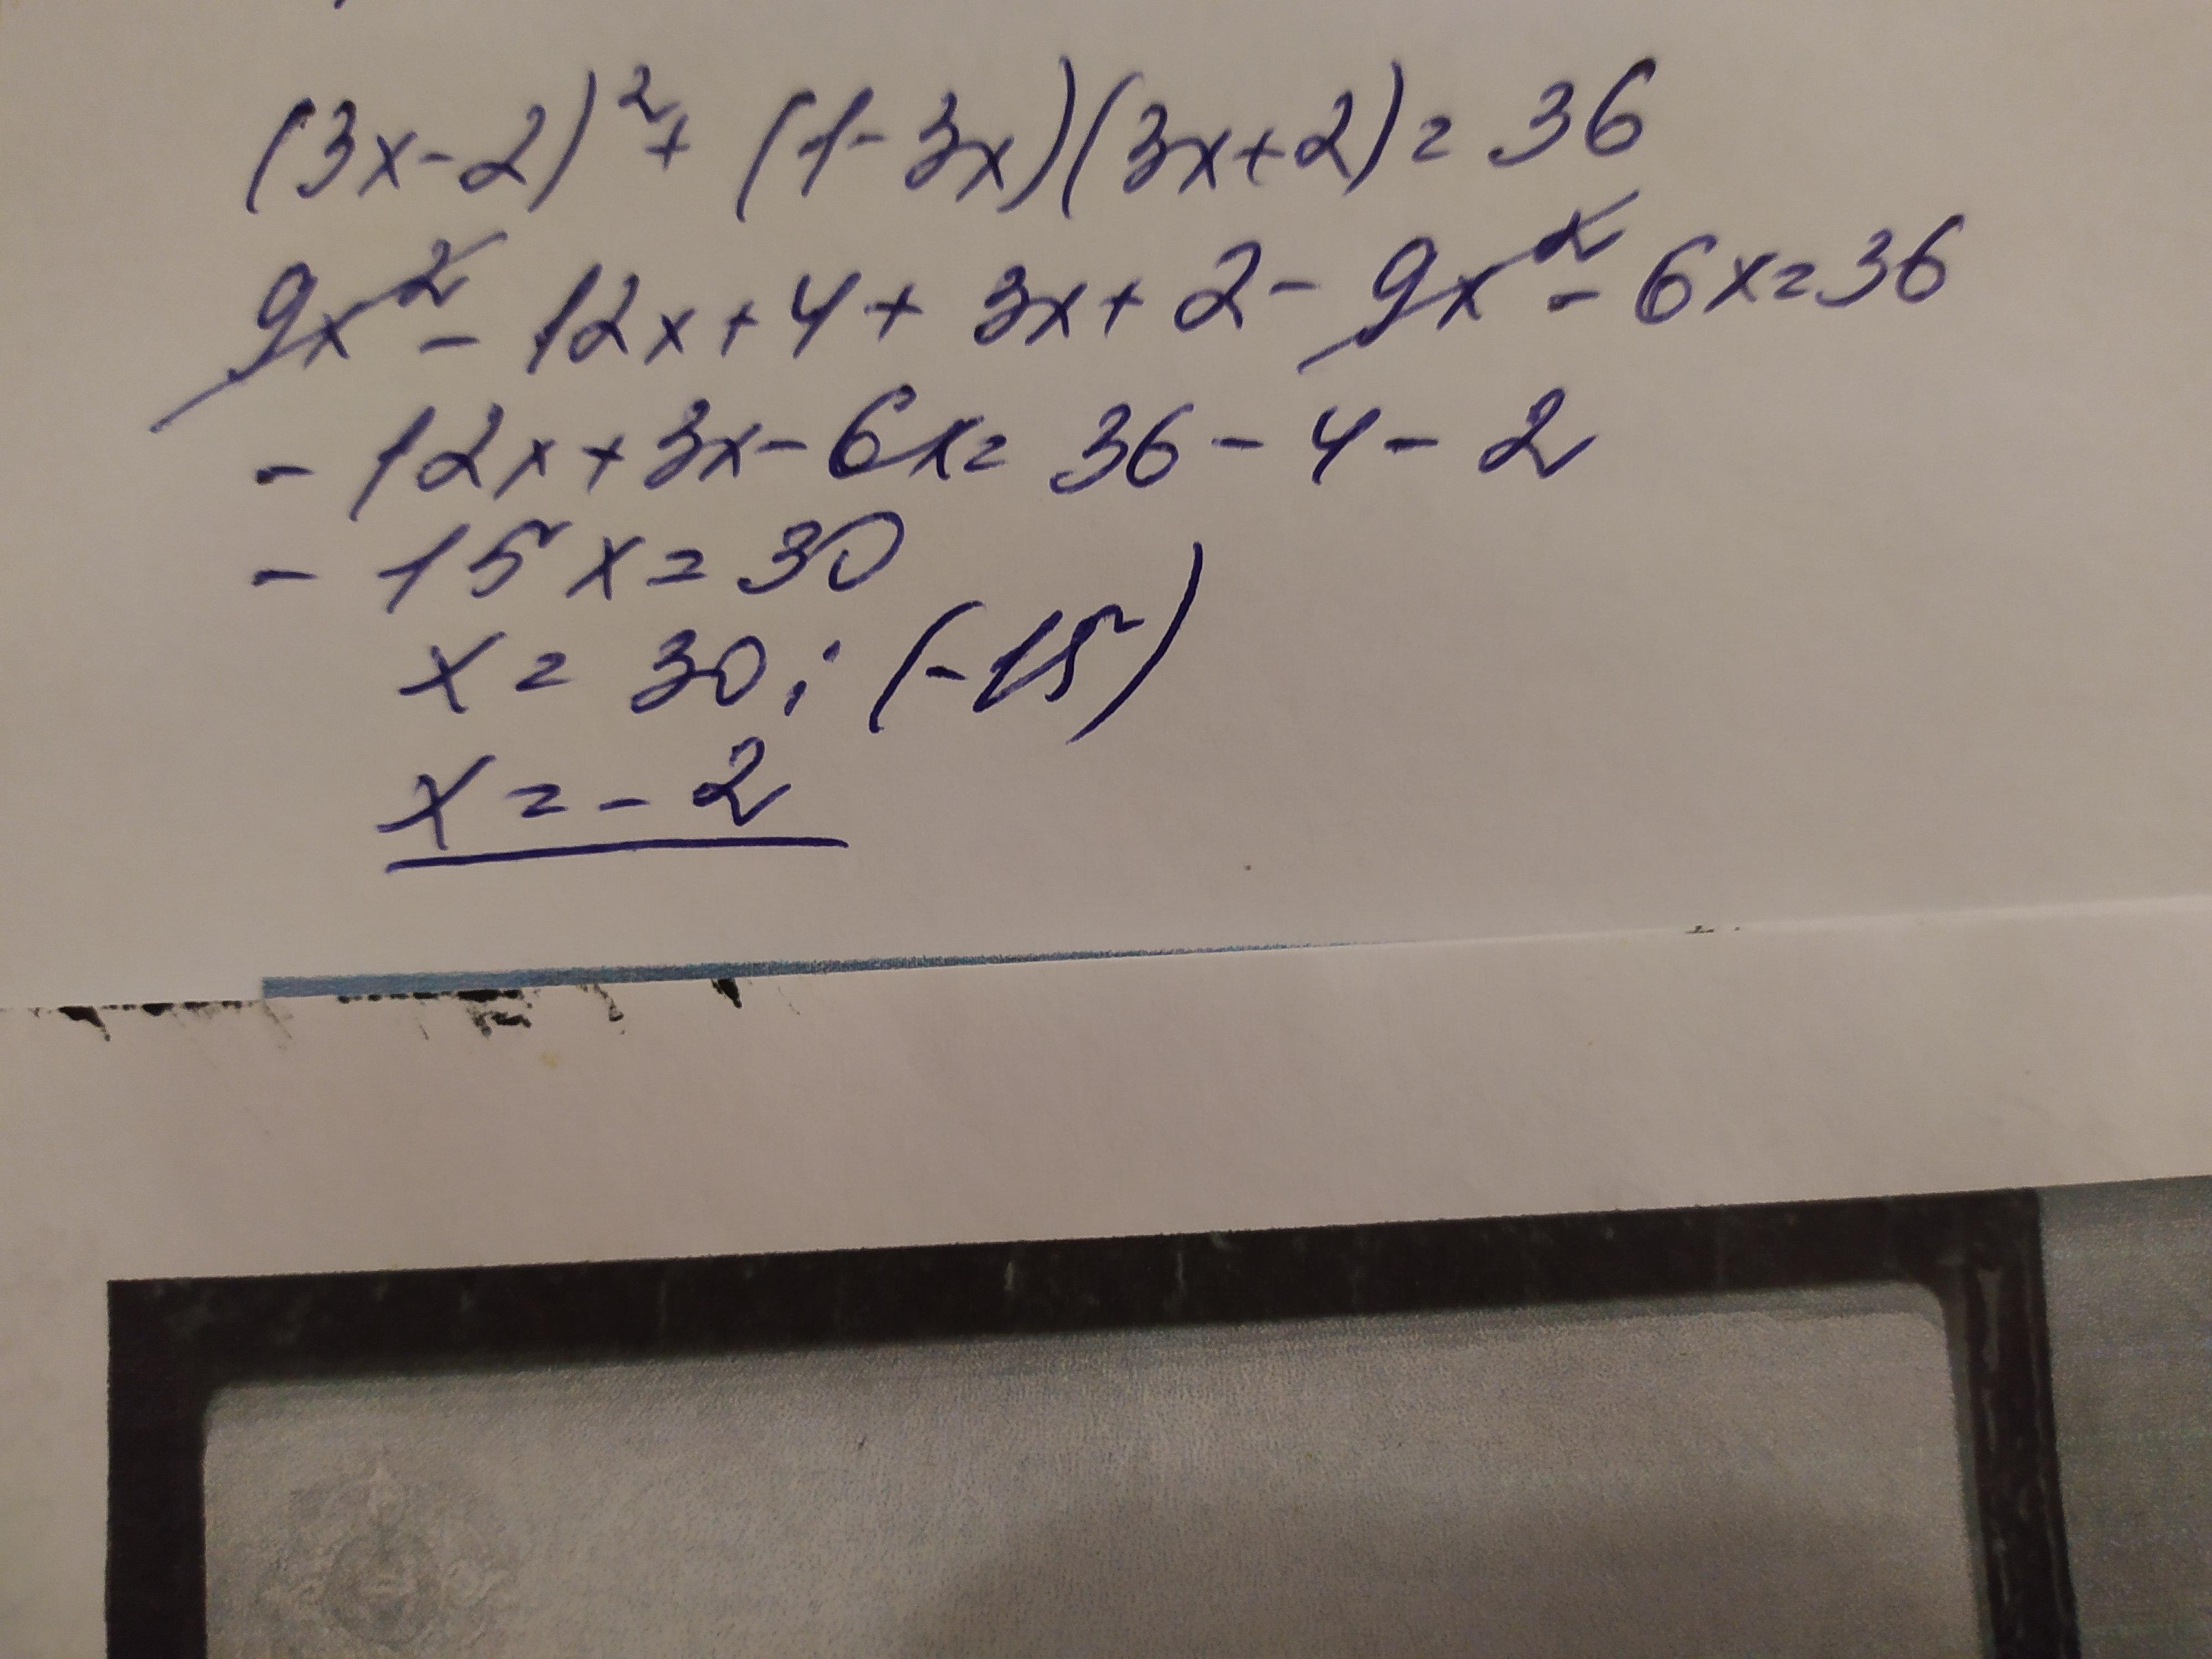 (3x-2)²+(1-3x)(3x+2)=36
9x²-12x+4+3x+2-9x²-6x=36
-12x+3x-6x=36-4-2
-15x=30
x=30:(-15)
x=-2